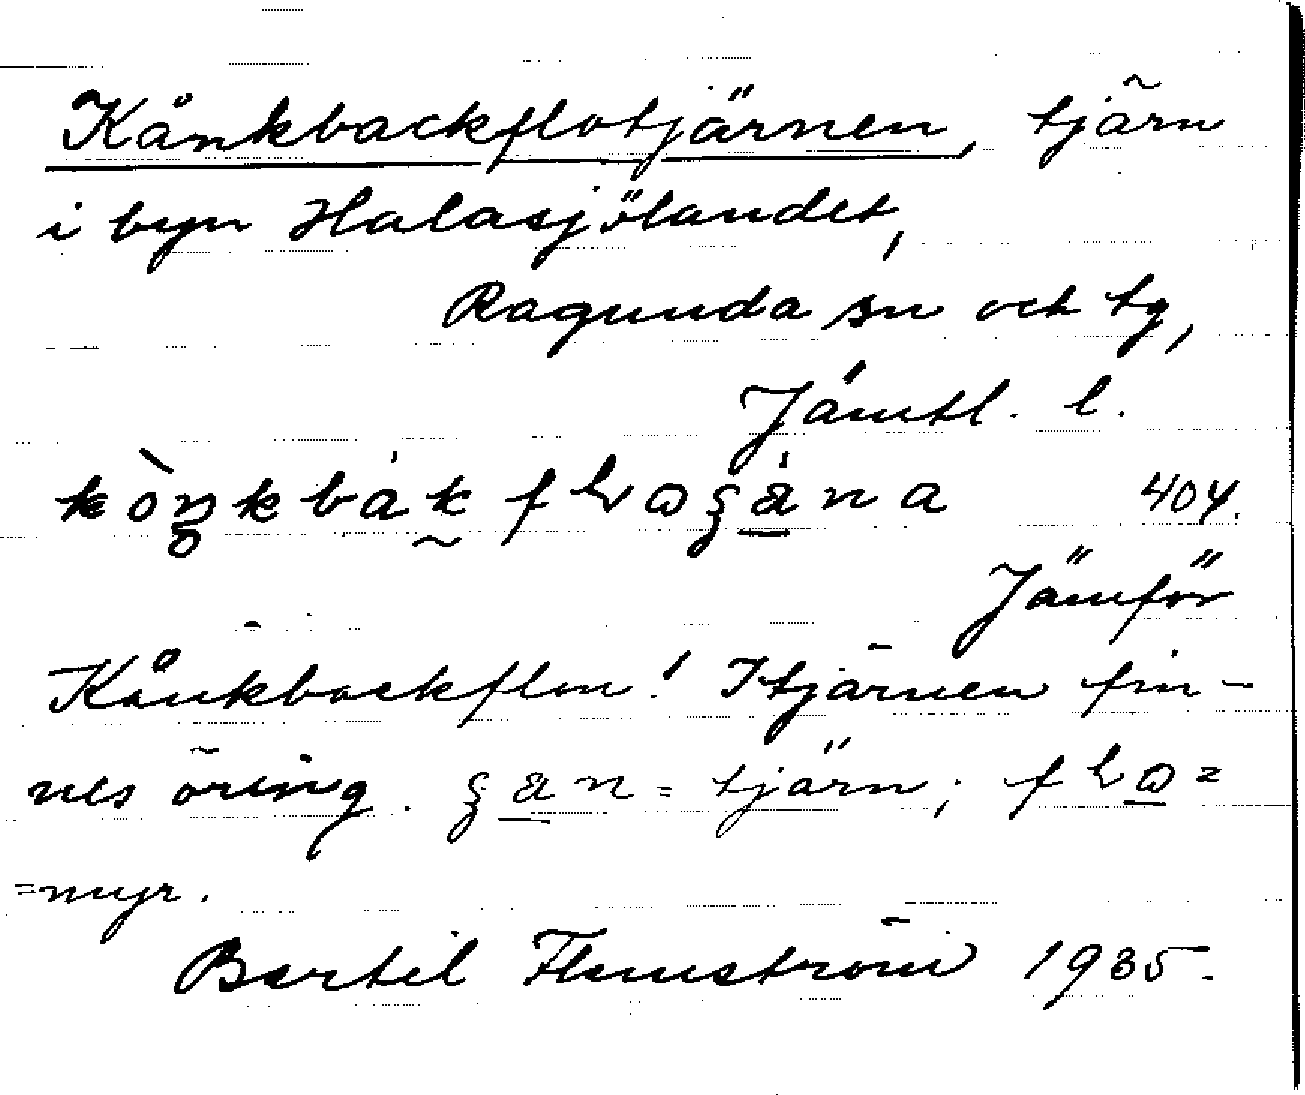 Kånkbackflotjärnen, tjärn
i byn Halasjölandet,
Ragunda sn och tg,
Jämtl. l.
404.
Jämför
Kånkbackflon! I tjärnen fin-
nes öring. = tjärn; =
= myr.
Bertil Flemström 1935.